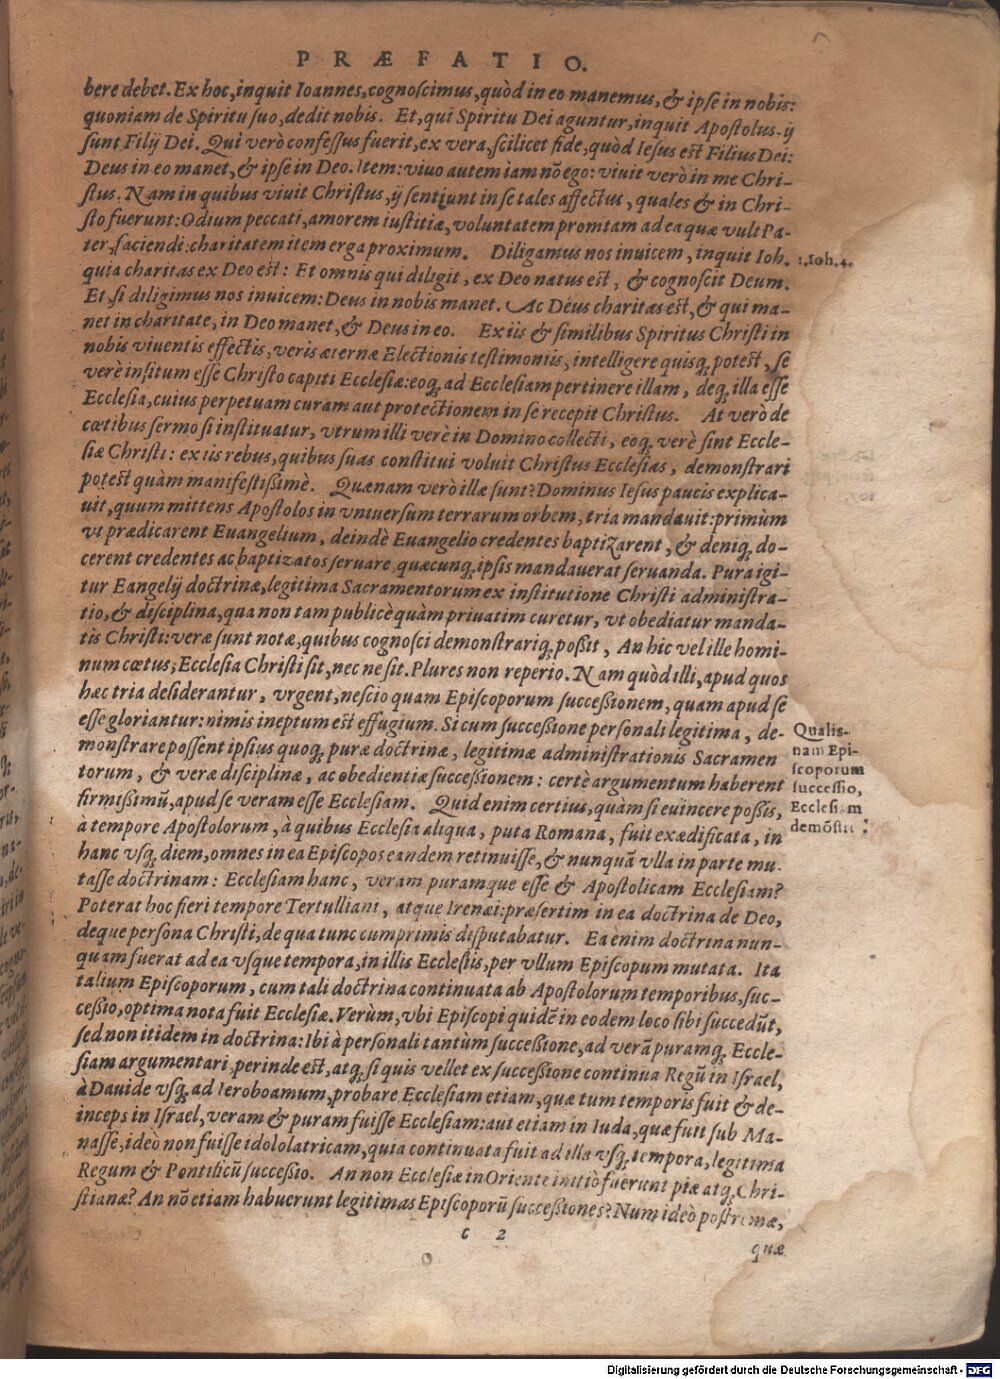 PRÆFATIO.
bere debet. Ex hoc, inquit Ioannes, cognoscimus, quòd in eo manemus, & ipse in nobis:
quoniam de Spiritu suo, dedit nobis. Et, qui Spiritu Dei aguntur, inquit Apostolus, ij
sunt Filij Dei. Qui verò confessus fuerit, ex vera, scilicet fide, quòd Iesus est Filius Dei:
Deus in eo manet, & ipse in Deo. Item: vivo autem iam nō ego: vivit verò in me Chri-
stus. Nam in quibus vivit Christus, ij sentiunt in se tales affectus, quales & in Chri-
sto fuerunt: Odium peccati, amorem iustitiæ, voluntatem promtam ad ea quæ vult Pa-
ter, faciendi: charitatem item erga proximum. Diligamus nos invicem, inquit Ioh. 1. Ioh. 4.
quia charitas ex Deo est: Et omnis qui diligit, ex Deo natus est, & cognoscit Deum.
Et, si diligimus nos invicem: Deus in nobis manet. Ac Deus charitas est, & qui ma-
net in charitate, in Deo manet, & Deus in eo. Ex iis & similibus Spiritus Christi in
nobis viventis effectis, veris æternæ Electionis testimoniis, intelligere quisq; potest, se
verè insitum esse Christo capiti Ecclesiæ: eoq; ad Ecclesiam pertinere illam, deq; illa esse
Ecclesia, cuius perpetuam curam aut protectionem in se recepit Christus. At verò de
cœtibus sermo si instituatur, vtrum illi verè in Domino collecti, eoq; verè sint Eccle-
siæ Christi: ex iis rebus, quibus suas constitui voluit Christus Ecclesias, demonstrari
potest quàm manifestißimè. Quænam verò illæ sunt? Dominus Iesus paucis explica-
uit, quum mittens Apostolos in vniuersum terrarum orbem, tria mandauit: primùm
vt prædicarent Euangelium, deindè Euangelio credentes baptizarent, & deniq; do-
cerent credentes ac baptizatos seruare, quæcunq; ipsis mandauerat seruanda. Pura igi-
tur Eangelij doctrinæ, legitima Sacramentorum ex institutione Christi administra-
tio, & disciplina, qua non tam publicè quàm priuatim curetur, vt obediatur manda-
tis Christi: veræ sunt notæ, quibus cognosci demonstrariq; poßit, An hic vel ille homi-
num cœtus, Ecclesia Christi sit, nec ne sit. Plures non reperio. Nam quòd illi, apud quos
hæc tria desiderantur, vrgent, nescio quam Episcoporum succeßionem, quam apud se
esse gloriantur: nimis ineptum est effugium. Si cum succeßione personali legitima, de-
monstrare possent ipsius quoq; puræ doctrinæ, legitimæ administrationis Sacramen
torum, & veræ disciplinæ, ac obedientiæ succeßionem: certè argumentum haberent
firmißimū, apud se veram esse Ecclesiam. Quid enim certius, quàm si euincere poßis,
à tempore Apostolorum, à quibus Ecclesia aliqua, puta Romana, fuit exædificata, in
hanc vsq; diem, omnes in ea Episcopos eandem retinuisse, & nunquā vlla in parte mu-
tasse doctrinam: Ecclesiam hanc, veram puramque esse & Apostolicam Ecclesiam?
Poterat hoc fieri tempore Tertulliani, atque Irenæi: præsertim in ea doctrina de Deo,
deque persona Christi, de qua tunc cumprimis disputabatur. Ea enim doctrina nun-
quam fuerat ad ea vsque tempora, in illis Ecclesiis, per vllum Episcopum mutata. Ita
talium Episcoporum, cum tali doctrina continuata ab Apostolorum temporibus, suc-
ceßio, optima nota fuit Ecclesiæ. Verùm, vbi Episcopi quidē in eodem loco sibi succedūt,
sed non itidem in doctrina: Ibi à personali tantùm succeßione, ad verā puramq; Eccle-
siam argumentari, perinde est, atq; si quis vellet ex succeßione continua Regū in Israel,
à Dauide vsq; ad Ieroboamum, probare Ecclesiam etiam, quæ tum temporis fuit & de-
inceps in Israel, veram & puram fuisse Ecclesiam: aut etiam in Iuda, quæ fuit sub Ma-
nasse, ideò non fuisse idololatricam, quia continuata fuit ad illa vsq; tempora, legitima
Regum & Pontificū succeßio. An non Ecclesiæ in Oriente initiò fuerunt piæ atq; Chri-
stianæ? An nō etiam habuerunt legitimas Episcoporū succeßiones? Num ideò postremæ,
Qualis-
nam Epi-
scoporum
successio,
Ecclesiam
demōstret
c 2
quæ
Digitalisierung gefördert durch die Deutsche Forschungsgemeinschaft - DFG